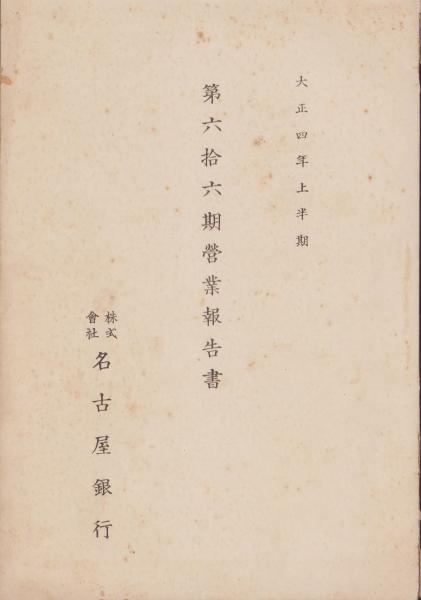 大正四年上半期
第六拾六期營業報告書
株式會社名古屋銀行